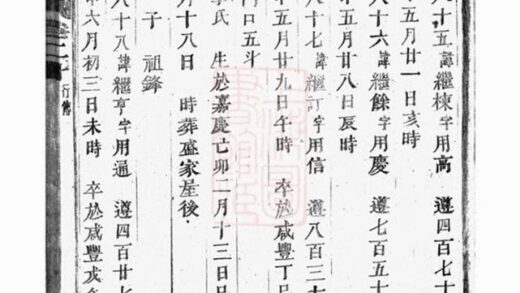 八十五諱繼棟字用高 遵四百七十
五月廿一日亥時
八十六諱繼餘字用慶 遵七百五十
五月廿八日辰時
八十七諱繼訂字用信 遵八百三十
年五月廿九日午時 卒於咸豐丁巳
口五斗
氏 生於嘉慶己卯二月十三日
月十八日 時葬盛家星後
子 祖鋒
八十八諱繼亨字用通 遵四百廿七
年六月初三日未時 卒於咸豐戊午
行傳